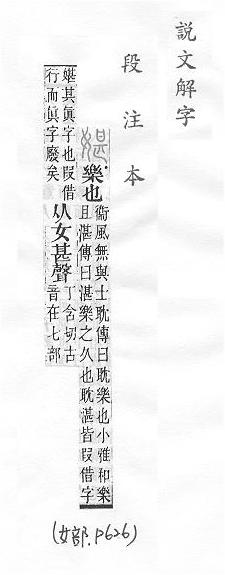 説文解字
段注本
媅
樂也
衞風無與士耽傳曰耽樂也小雅和樂
且湛傳曰湛樂之久也耽湛皆叚借字
媅其眞字也叚借
行而眞字廢矣
从女甚聲
丁含切古
音在七部
(女部.P626)